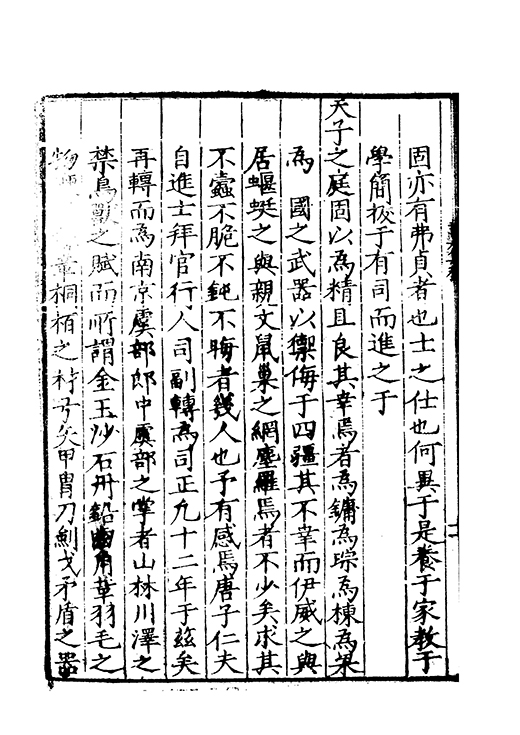 固亦有弗貞者也士之仕也何異于是養于家教于
學簡拔于有司而進之于
天子之庭固以為精且良其幸焉者為鏞為琮為棟為梁
為 國之武器以禦侮于四疆其不幸而伊威之與
居蝘蜓之與親文鼠巢之網塵羅焉者不少矣求其
不蠹不脆不鈍不晦者幾人也予有感焉唐子仁夫
自進士拜官行人司副轉為司正凡十二年于茲矣
再轉而為南京虞部郎中虞部之掌者山林川澤之
禁鳥獸之賦而所謂金玉沙石丹鉛齒角草羽毛之
物 桐栢之材弓矢甲冑刀劍戈矛盾之器